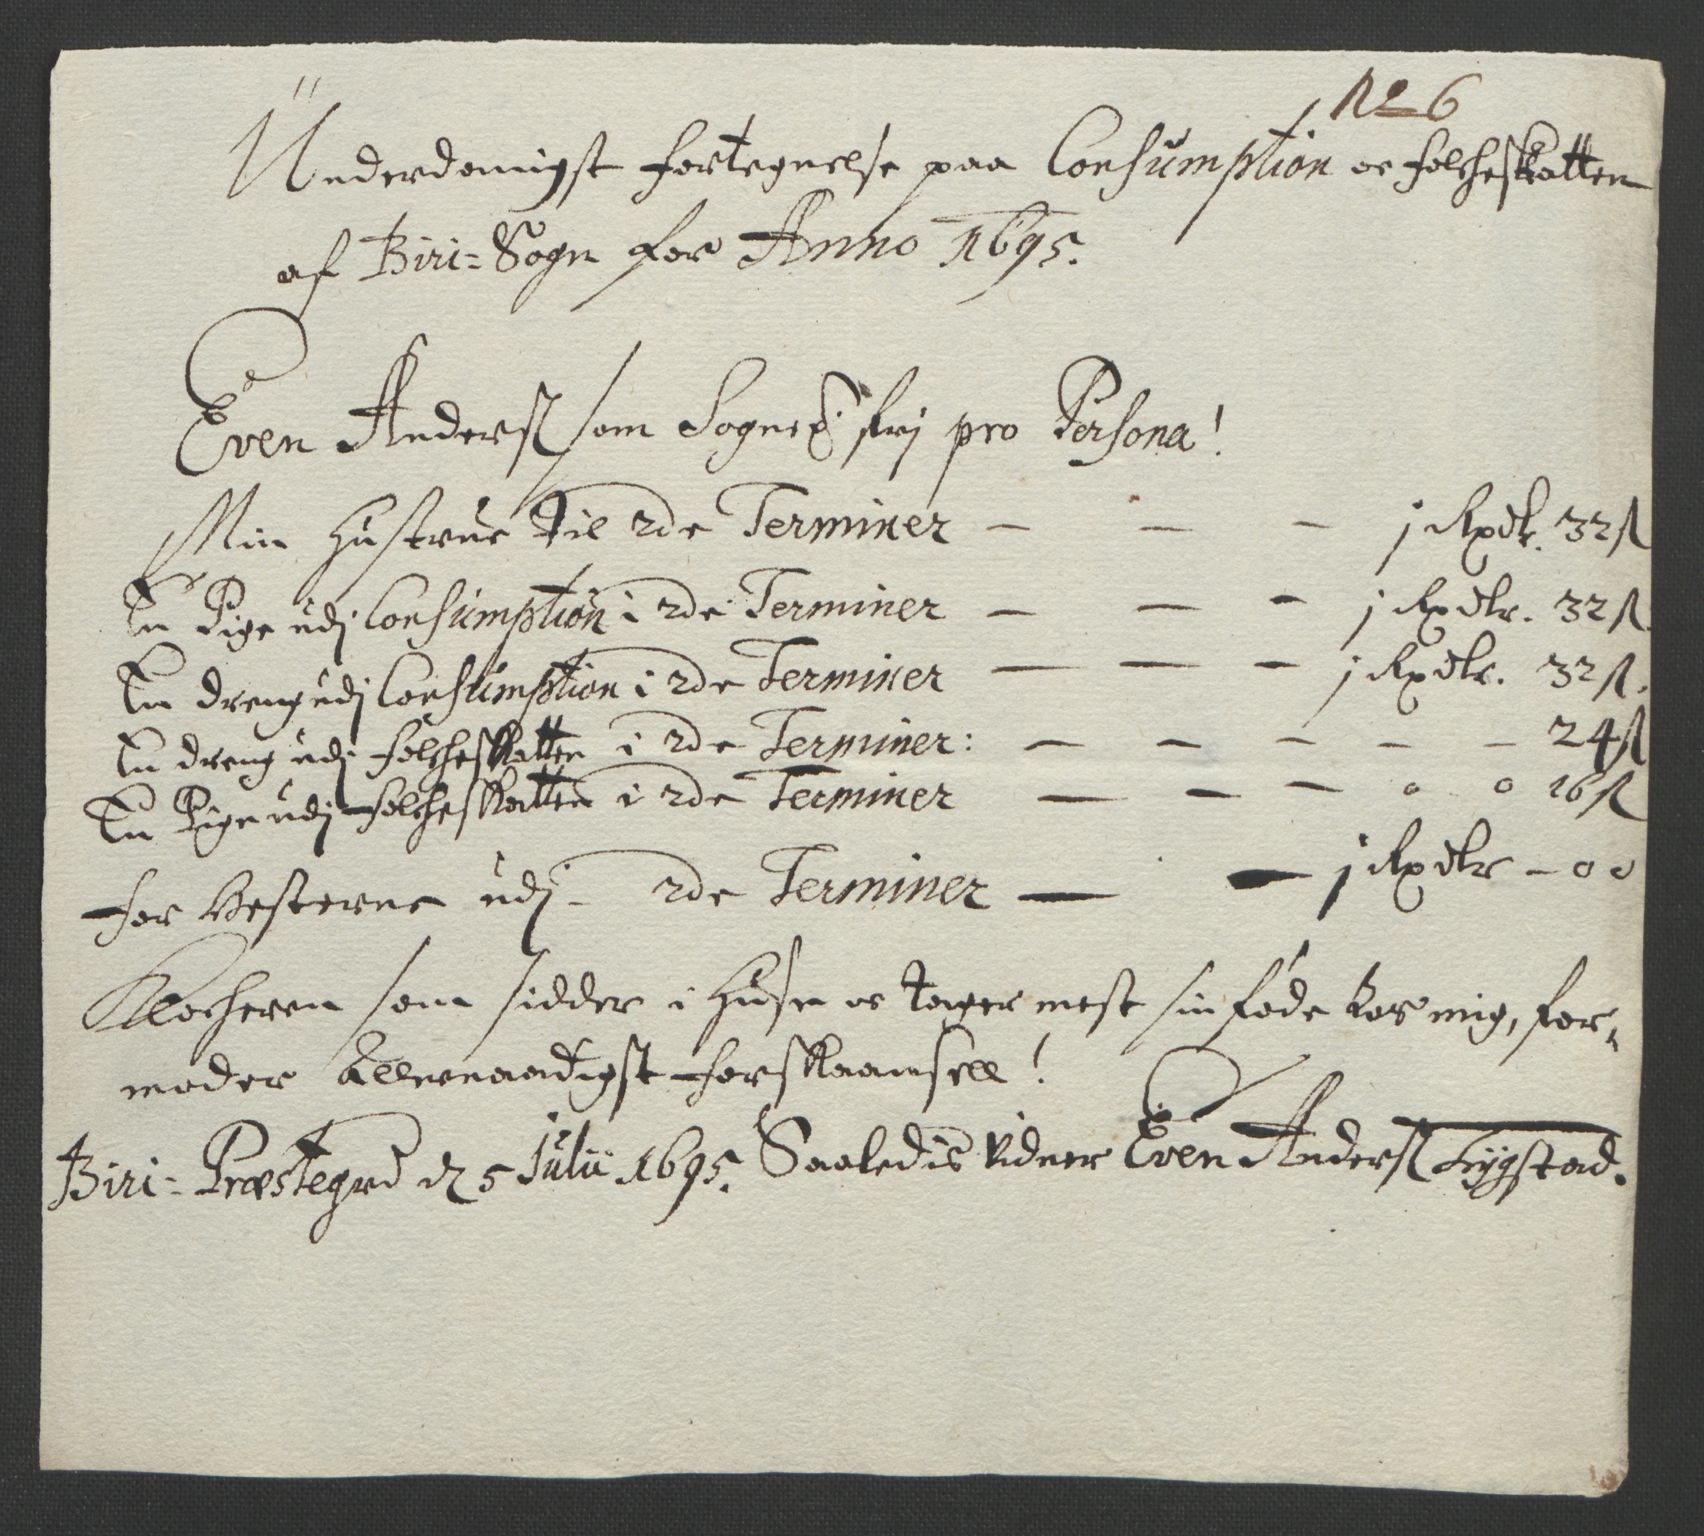 No 6
Underdanigst fortegnelse paa Consumption oc folcheskatten
af Biri= Sogn for Anno 1695.
Even Anderss som Sogne fri pro Persona!
Min hustrue til 2de Terminer — — — 1 Rxdlr. 32 ß
En Pige udj Consumption i 2de Terminer — — — 1 Rxdlr. 32 ß.
En dreng udj Consumption i 2de Terminer — — — 1 Rxdlr. 32 ß.
En dreng udj folcheskatten i 2de Terminer: — — — — — 24 ß
En Pige udj folcheskatten i 2de Terminer — — — 0 0 16 ß
for hesterne udj 2de Terminer — — 1 Rxdlr – 0 0
Klocheren som sidder i huse oc tager mest sin føde hos mig, for-
moder allernaadigst forskaansell!
Biri= Præstegrd d 5 Julii 1695. Saaledis vidner Even Anderss Lygstad.